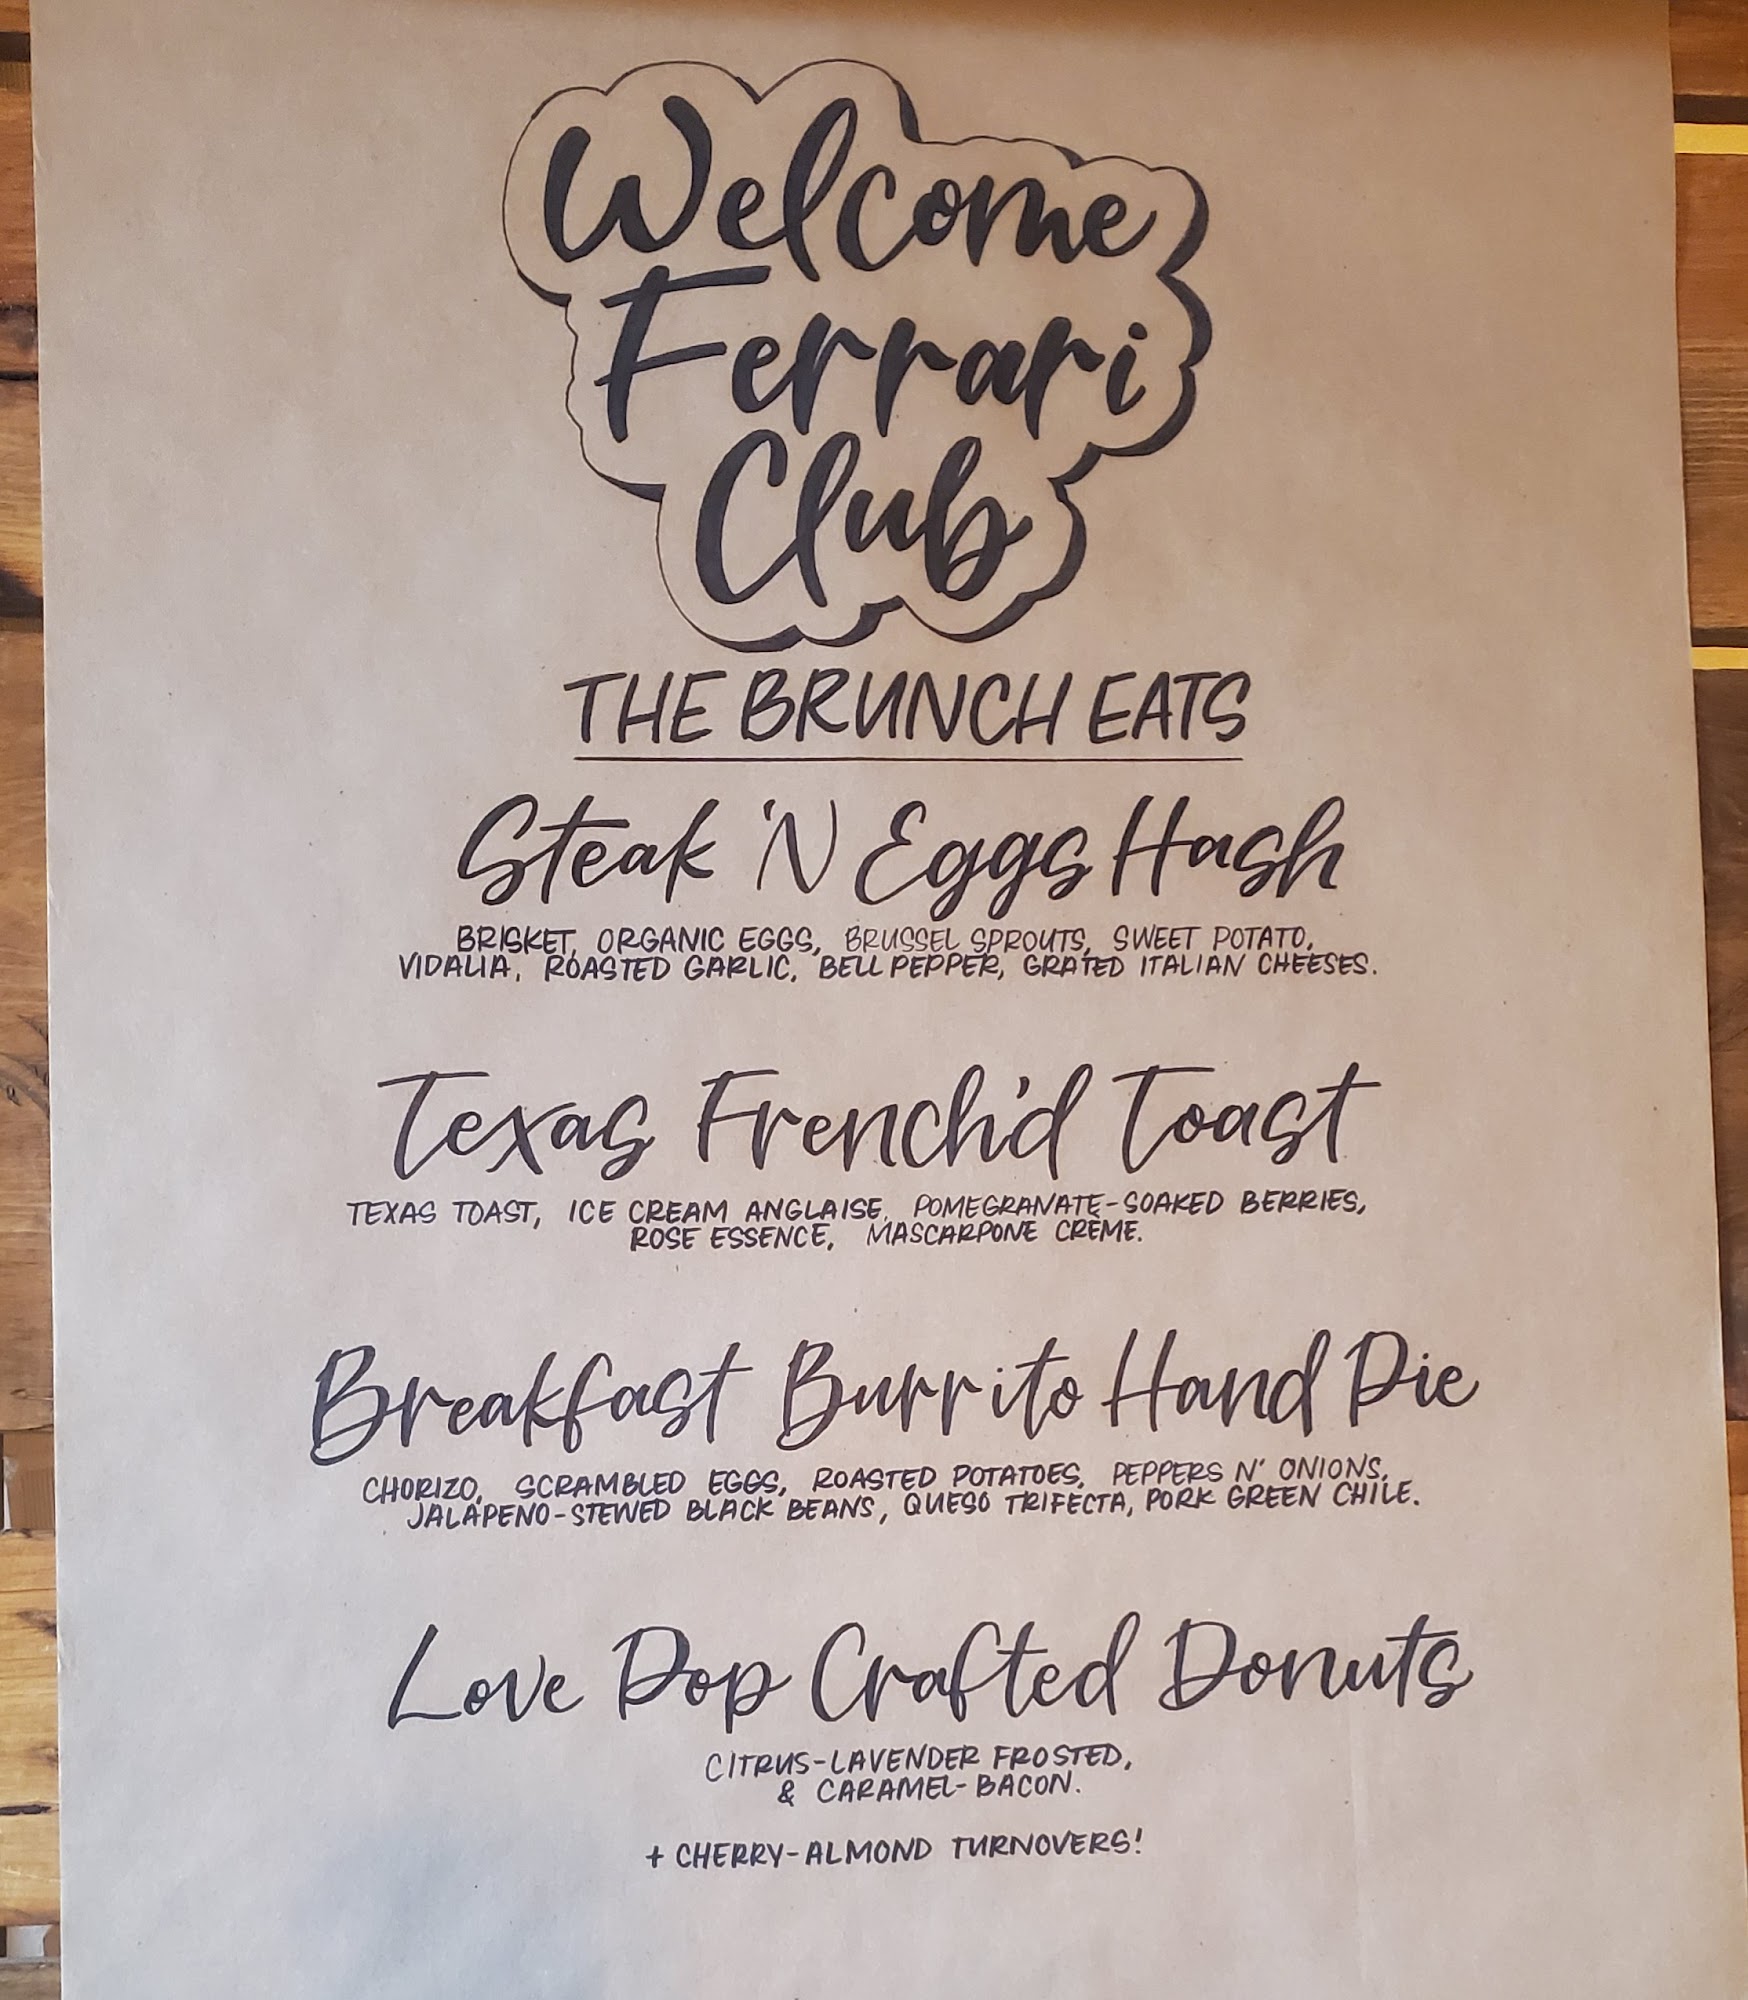 Welcome
Ferrari
Club
THE BRUNCH EATS
Steak 'N Eggs Hash
BRISKET, ORGANIC EGGS, BRUSSEL SPROUTS, SWEET POTATO,
VIDALIA, ROASTED GARLIC, BELL PEPPER, GRATED ITALIAN CHEESES.
Texas French'd Toast
TEXAS TOAST, ICE CREAM ANGLAISE, POMEGRANATE-SOAKED BERRIES,
ROSE ESSENCE, MASCARPONE CRÈME.
Breakfast Burrito Hand Pie
CHORIZO, SCRAMBLED EGGS, ROASTED POTATOES, PEPPERS N' ONIONS,
JALAPENO-STEWED BLACK BEANS, QUESO TRIFECTA, PORK GREEN CHILE.
Love Pop Crafted Donuts
CITRUS-LAVENDER FROSTED,
& CARAMEL-BACON.
+ CHERRY-ALMOND TURNOVERS!